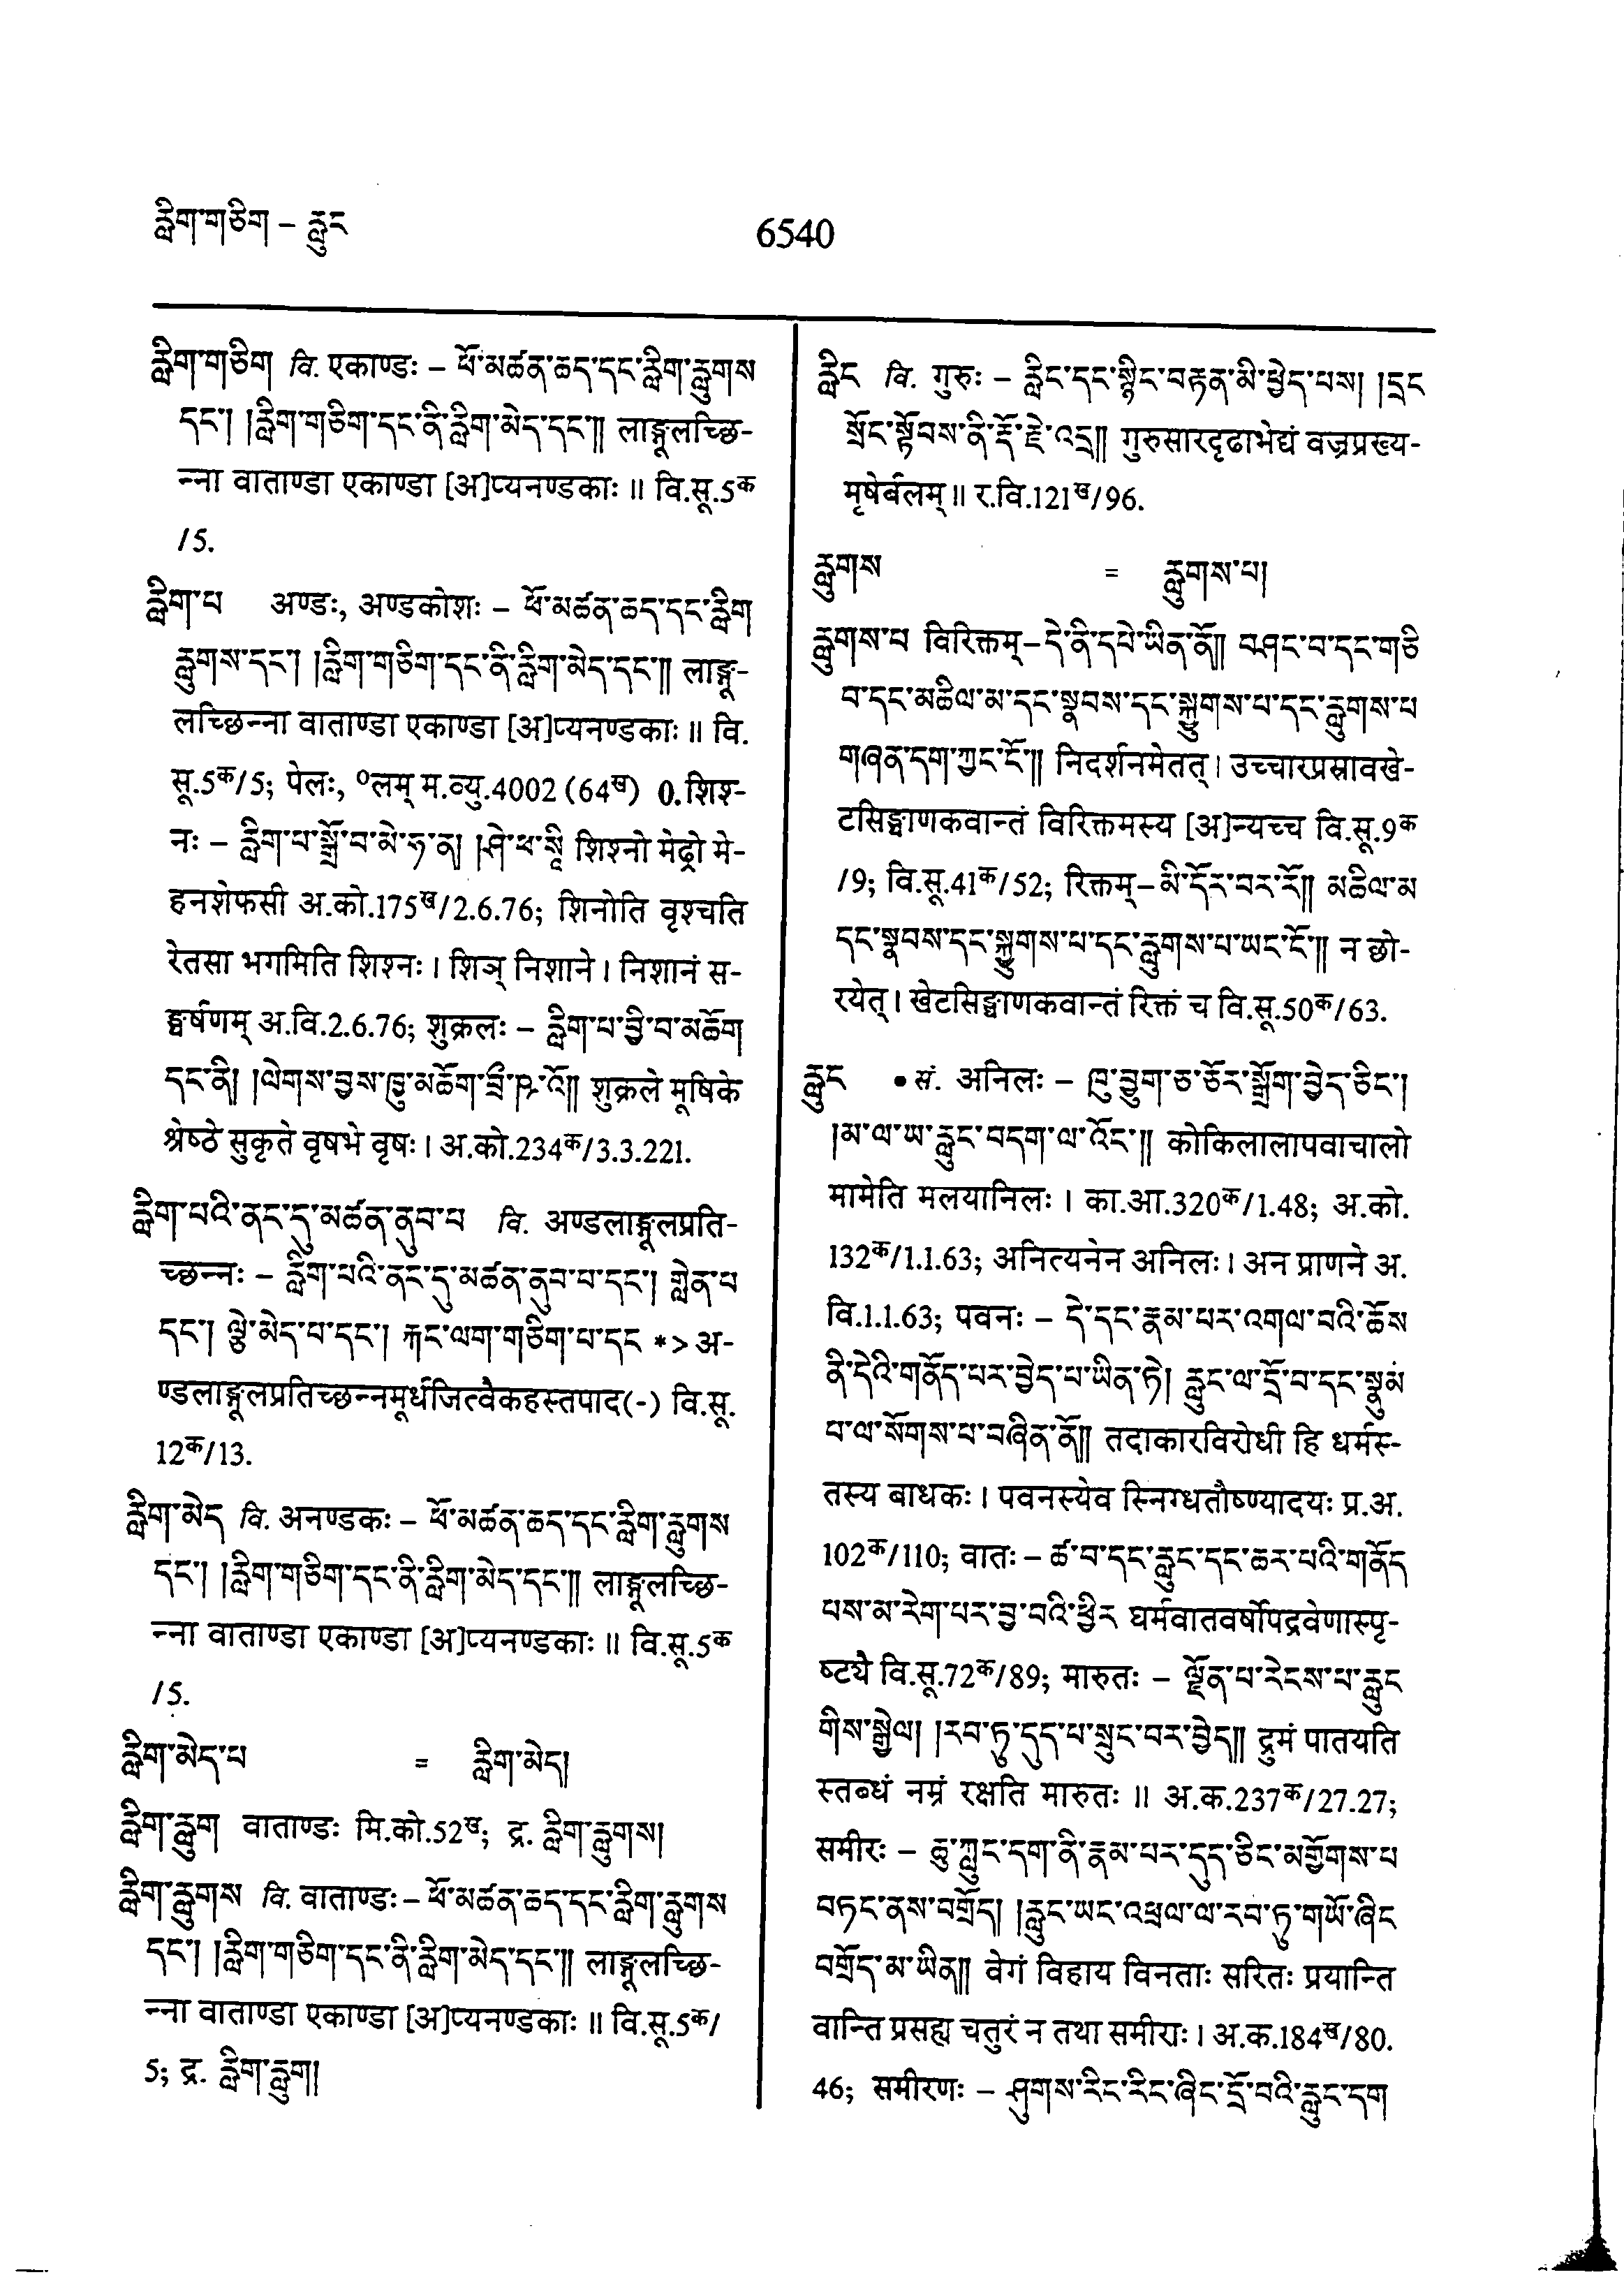 རླིག་གཅིག – རླུང
6540
རླིག་གཅིག वि. एकाण्डः – ཕོ་མཚན་ཆད་དང་རླིག་རླུགས
དང་། །རླིག་གཅིག་དང་ནི་རླིག་མེད་དང་།། लाङ्गूलच्छि-
न्ना वाताण्डा एकाण्डा [अ]प्यनण्डकाः ॥ वि.सू.5क
/5.
རླིག་པ अण्डः, अण्डकोशः – ཕོ་མཚན་ཆད་དང་རླིག
རླུགས་དང་། །རླིག་གཅིག་དང་ནི་རླིག་མེད་དང་།། लाङ्गू-
लच्छिन्ना वाताण्डा एकाण्डा [अ]प्यनण्डकाः ॥ वि.
सू.5क/5; पेलः, ०लम् म.व्यु.4002 (64ख) 0.शिश्-
नः – རླིག་པ་སྒྲོ་བ་མེ་ཧ་ན། །ཤེ་ཕ་སཱི शिश्नो मेढ्रो मे-
हनशेफसी अ.को.175ख/2.6.76; शिनोति वृश्चति
रेतसा भगमिति शिश्नः । शिञ् निशाने । निशानं स-
ङ्घर्षणम् अ.वि.2.6.76; शुक्रलः – རླིག་པ་བྱི་བ་མཆོག
དང་ནི། །ལེགས་བྱས་ཁྱུ་མཆོག་བྲྀ་ཥ་འོ།། शुक्रले मूषिके
श्रेष्ठे सुकृते वृषभे वृषः । अ.को.234क/3.3.221.
རླིག་པའི་ནང་དུ་མཚན་ནུབ་པ वि. अण्डलाङ्गूलप्रति-
च्छन्नः – རླིག་པའི་ནང་དུ་མཚན་ནུབ་པ་དང་། གླེན་པ
དང་། ལྕེ་མེད་པ་དང་། རྐང་ལག་གཅིག་པ་དང *> अ-
ण्डलाङ्गूलप्रतिच्छन्नमूर्धजित्वैकहस्तपाद(-) वि.सू.
12क/13.
རླིག་མེད वि. अनण्डकः – ཕོ་མཚན་ཆད་དང་རླིག་རླུགས
དང་། །རླིག་གཅིག་དང་ནི་རླིག་མེད་དང་།། लाङ्गूलच्छि-
न्ना वाताण्डा एकाण्डा [अ]प्यनण्डकाः ॥ वि.सू.5क
/5.
རླིག་མེད་པ = རླིག་མེད།
རླིག་རླུག वाताण्डः मि.को.52ख; द्र. རླིག་རླུགས།
རླིག་རླུགས वि. वाताण्डः – ཕོ་མཚན་ཆད་དང་རླིག་རླུགས
དང་། །རླིག་གཅིག་དང་ནི་རླིག་མེད་དང་།། लाङ्गूलच्छि-
न्ना वाताण्डा एकाण्डा [अ]प्यनण्डकाः ॥ वि.सू.5क/
5; द्र. རླིག་རླུག།
རླིང वि. गुरुः – རླིང་དང་སྙིང་བརྟན་མི་ཕྱེད་པས། །དྲང
སྲོང་སྟོབས་ནི་རྡོ་རྗེ་འདྲ།། गुरुसारदृढाभेद्यं वज्रप्रख्य-
मृषेर्बलम् ॥ र.वि.121ख/96.
རླུགས = རླུགས་པ།
རླུགས་པ विरिक्तम् – དེ་ནི་དཔེ་ཡིན་ནོ།། བཤང་བ་དང་གཅི
བ་དང་མཆིལ་མ་དང་སྣབས་དང་སྐྱུགས་པ་དང་རླུགས་པ
གཞན་དག་ཀྱང་ངོ་།། निदर्शनमेतत् । उच्चारप्रस्रावखे-
टसिङ्घाणकवान्तं विरिक्तमस्य [अ]न्यच्च वि.सू.9क
/9; वि.सू.41क/52; रिक्तम् – མི་དོར་བར་རོ།། མཆིལ་མ
དང་སྣབས་དང་སྐྱུགས་པ་དང་རླུགས་པ་ཡང་ངོ་།། न छो-
रयेत् । खेटसिङ्घाणकवान्तं रिक्तं च वि.सू.50क/63.
རླུང • सं. अनिलः – ཁུ་བྱུག་ཅ་ཅོར་སྒྲོག་བྱེད་ཅིང་།
།མ་ལ་ཡ་རླུང་བདག་ལ་འོང་།། कोकिलालापवाचालो
मामेति मलयानिलः । का.आ.320क/1.48; अ.को.
132क/1.1.63; अनित्यनेन अनिलः । अन प्राणने अ.
वि.1.1.63; पवनः – དེ་དང་རྣམ་པར་འགལ་བའི་ཆོས
ནི་དེའི་གནོད་པར་བྱེད་པ་ཡིན་ཏེ། རླུང་ལ་དྲོ་བ་དང་སྣུམ
བ་ལ་སོགས་པ་བཞིན་ནོ།། तदाकारविरोधी हि धर्मस्-
तस्य बाधकः । पवनस्येव स्निग्धतौष्ण्यादयः प्र.अ.
102क/110; वातः – ཚ་བ་དང་རླུང་དང་ཆར་པའི་གནོད
པས་མ་རེག་པར་བྱ་བའི་ཕྱིར घर्मवातवर्षोपद्रवेणास्पृ-
ष्ट्यै वि.सू.72क/89; मारुतः – ལྗོན་པ་རེངས་པ་རླུང
གིས་སྒྱེལ། །རབ་ཏུ་དུད་པ་སྲུང་བར་བྱེད།། द्रुमं पातयति
स्तब्धं नम्रं रक्षति मारुतः ॥ अ.क.237क/27.27;
समीरः – ཆུ་ཀླུང་དག་ནི་རྣམ་པར་དུད་ཅིང་མགྱོགས་པ
བཏང་ནས་བགྲོད། །རླུང་ཡང་འཕྲལ་ལ་རབ་ཏུ་གཡོ་ཞིང
བགྲོད་མ་ཡིན།། वेगं विहाय विनताः सरितः प्रयान्ति
वान्ति प्रसह्य चतुरं न तथा समीराः । अ.क.184ख/80.
46; समीरणः – ཤུགས་རིང་རིང་ཞིང་དྲོ་བའི་རླུང་དག